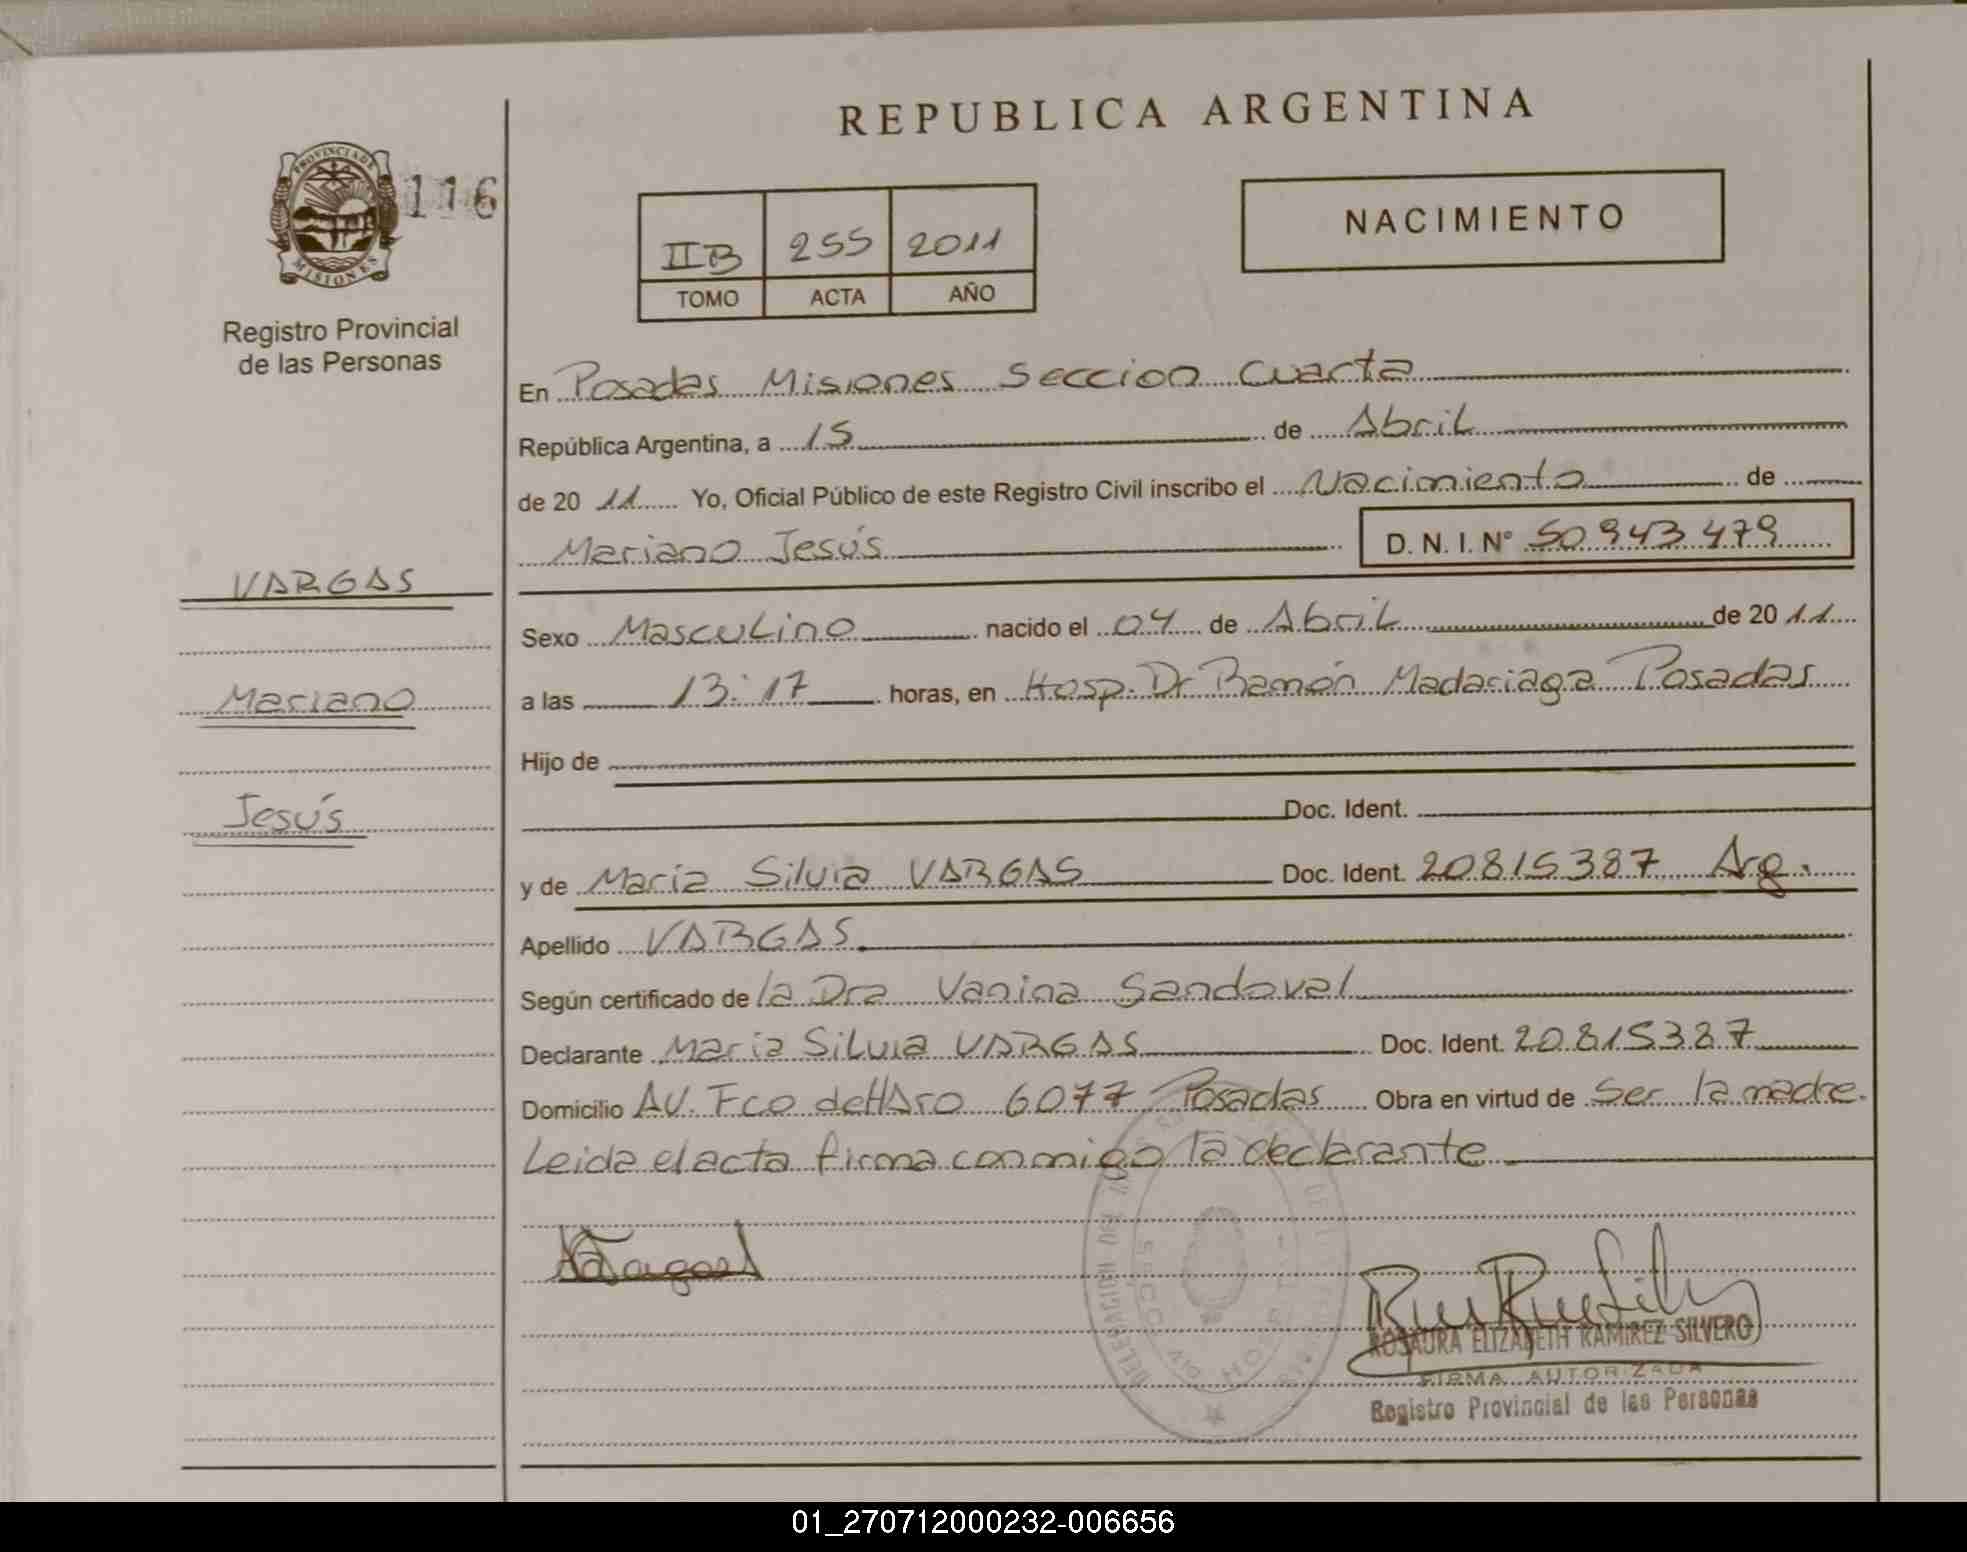 REPUBLICA ARGENTINA
PROVINCIA DE
MISIONES
116
Registro Provincial
de las Personas
IIB 255 2011
TOMO ACTA AÑO
NACIMIENTO
En Posadas Misiones Seccion Cuarta
República Argentina, a 15 de Abril
de 20 11 Yo, Oficial Público de este Registro Civil inscribo el Nacimiento de
Mariano Jesús D. N. I. N° 50 943 479
VARGAS
Mariano
Jesús
Sexo Masculino nacido el 04 de Abril de 20 11
a las 13:17 horas, en Hosp. Dr Ramón Madariaga Posadas
Hijo de
Doc. Ident.
y de Maria Silvia VARGAS Doc. Ident. 20815387 Arg.
Apellido VARGAS
Según certificado de la Dra Vanina Sandoval
Declarante Maria Silvia VARGAS Doc. Ident. 20815387
Domicilio AV. Fco deHAro 6077 Posadas Obra en virtud de Ser la madre.
Leida el acta firma conmigo la declarante
ROSAURA ELIZABETH RAMIREZ SILVERO
FIRMA AUTORIZADA
Registro Provincial de las Personas
01_270712000232-006656